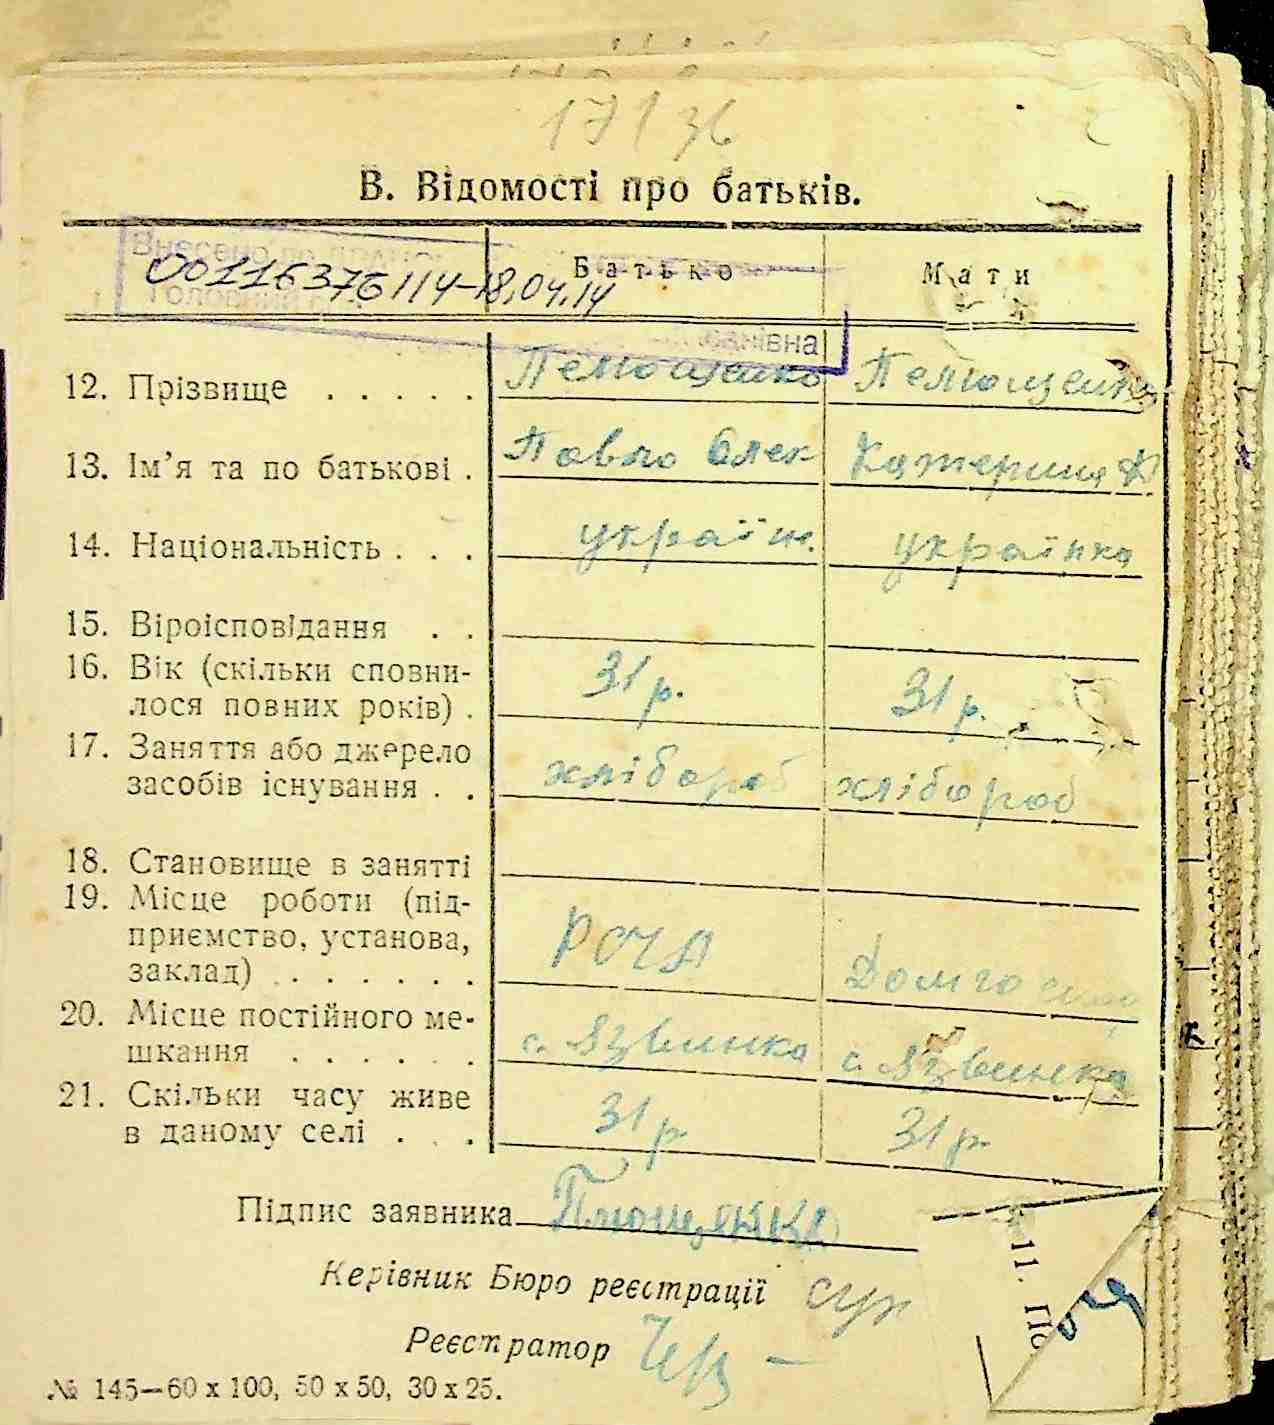 17136
В. Відомості про батьків.
Внесено до
00116376114-18.04.14
Батько Мати
12. Прізвище . . . . .
13. Ім'я та по батькові . Павло Олек Катерина
14. Національність . . . україн. українка
15. Віроісповідання . .
16. Вік (скільки сповни-
лося повних років) . 31 р. 31 р.
17. Заняття або джерело
засобів існування . . хлібороб хлібороб
18. Становище в занятті
19. Місце роботи (під-
приємство, установа,
заклад) . . . . . .
20. Місце постійного ме-
шкання . . . . . с. Язвинка с. Язвинка
21. Скільки часу живе
в даному селі . . . 31 р. 31 р.
Підпис заявника
Керівник Бюро реєстрації
Реєстратор
№ 145—60 х 100, 50 х 50, 30 х 25.
11. По